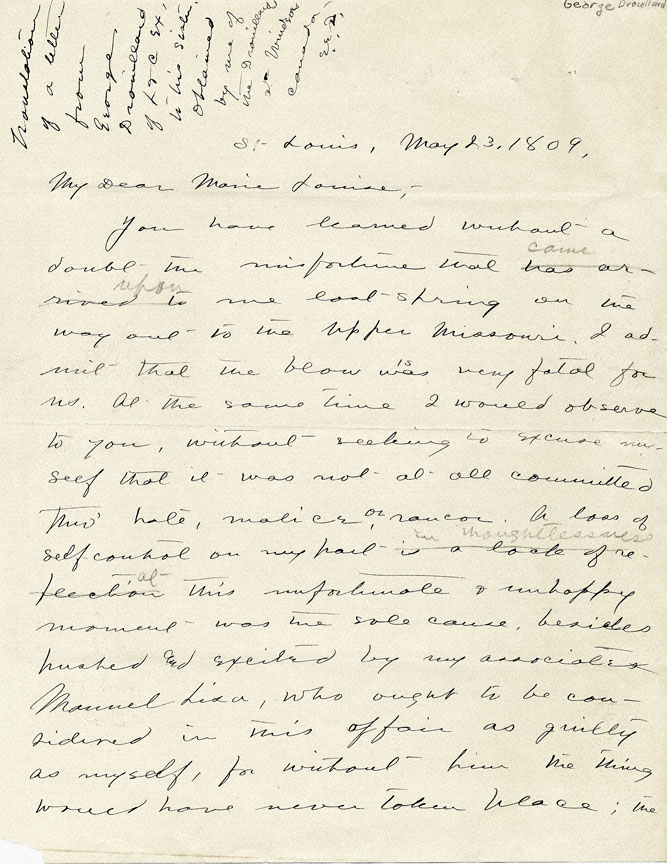 George Drouillard
Translation
of a letter
from
George
Drouillard
of L & C Ex.
to his sister
Obtained
by me of
the Drouillards
at Windsor
Canada.
St Louis, May 23, 1809,
My Dear Marie Louise,-
You have learned without a
came
doubt the misfortune that has ar-
upon
rived to me last spring on the
way out to the Upper Missouri. I ad-
mit that the blow was very fatal for
us. At the same time I would observe
to you, without seeking to excuse my-
self that it was not at all committed
thro' hate, malice or rancor. A loss of
thoughtlessness
self control on my part is a lack of re-
at
flection this unfortunate & unhappy
moment was the sole cause, besides
pushed and excited by my associate
Manuel Lisa, who ought to be con-
sidered in this affair as guilty
as myself, for without him the thing
would have never taken place; the